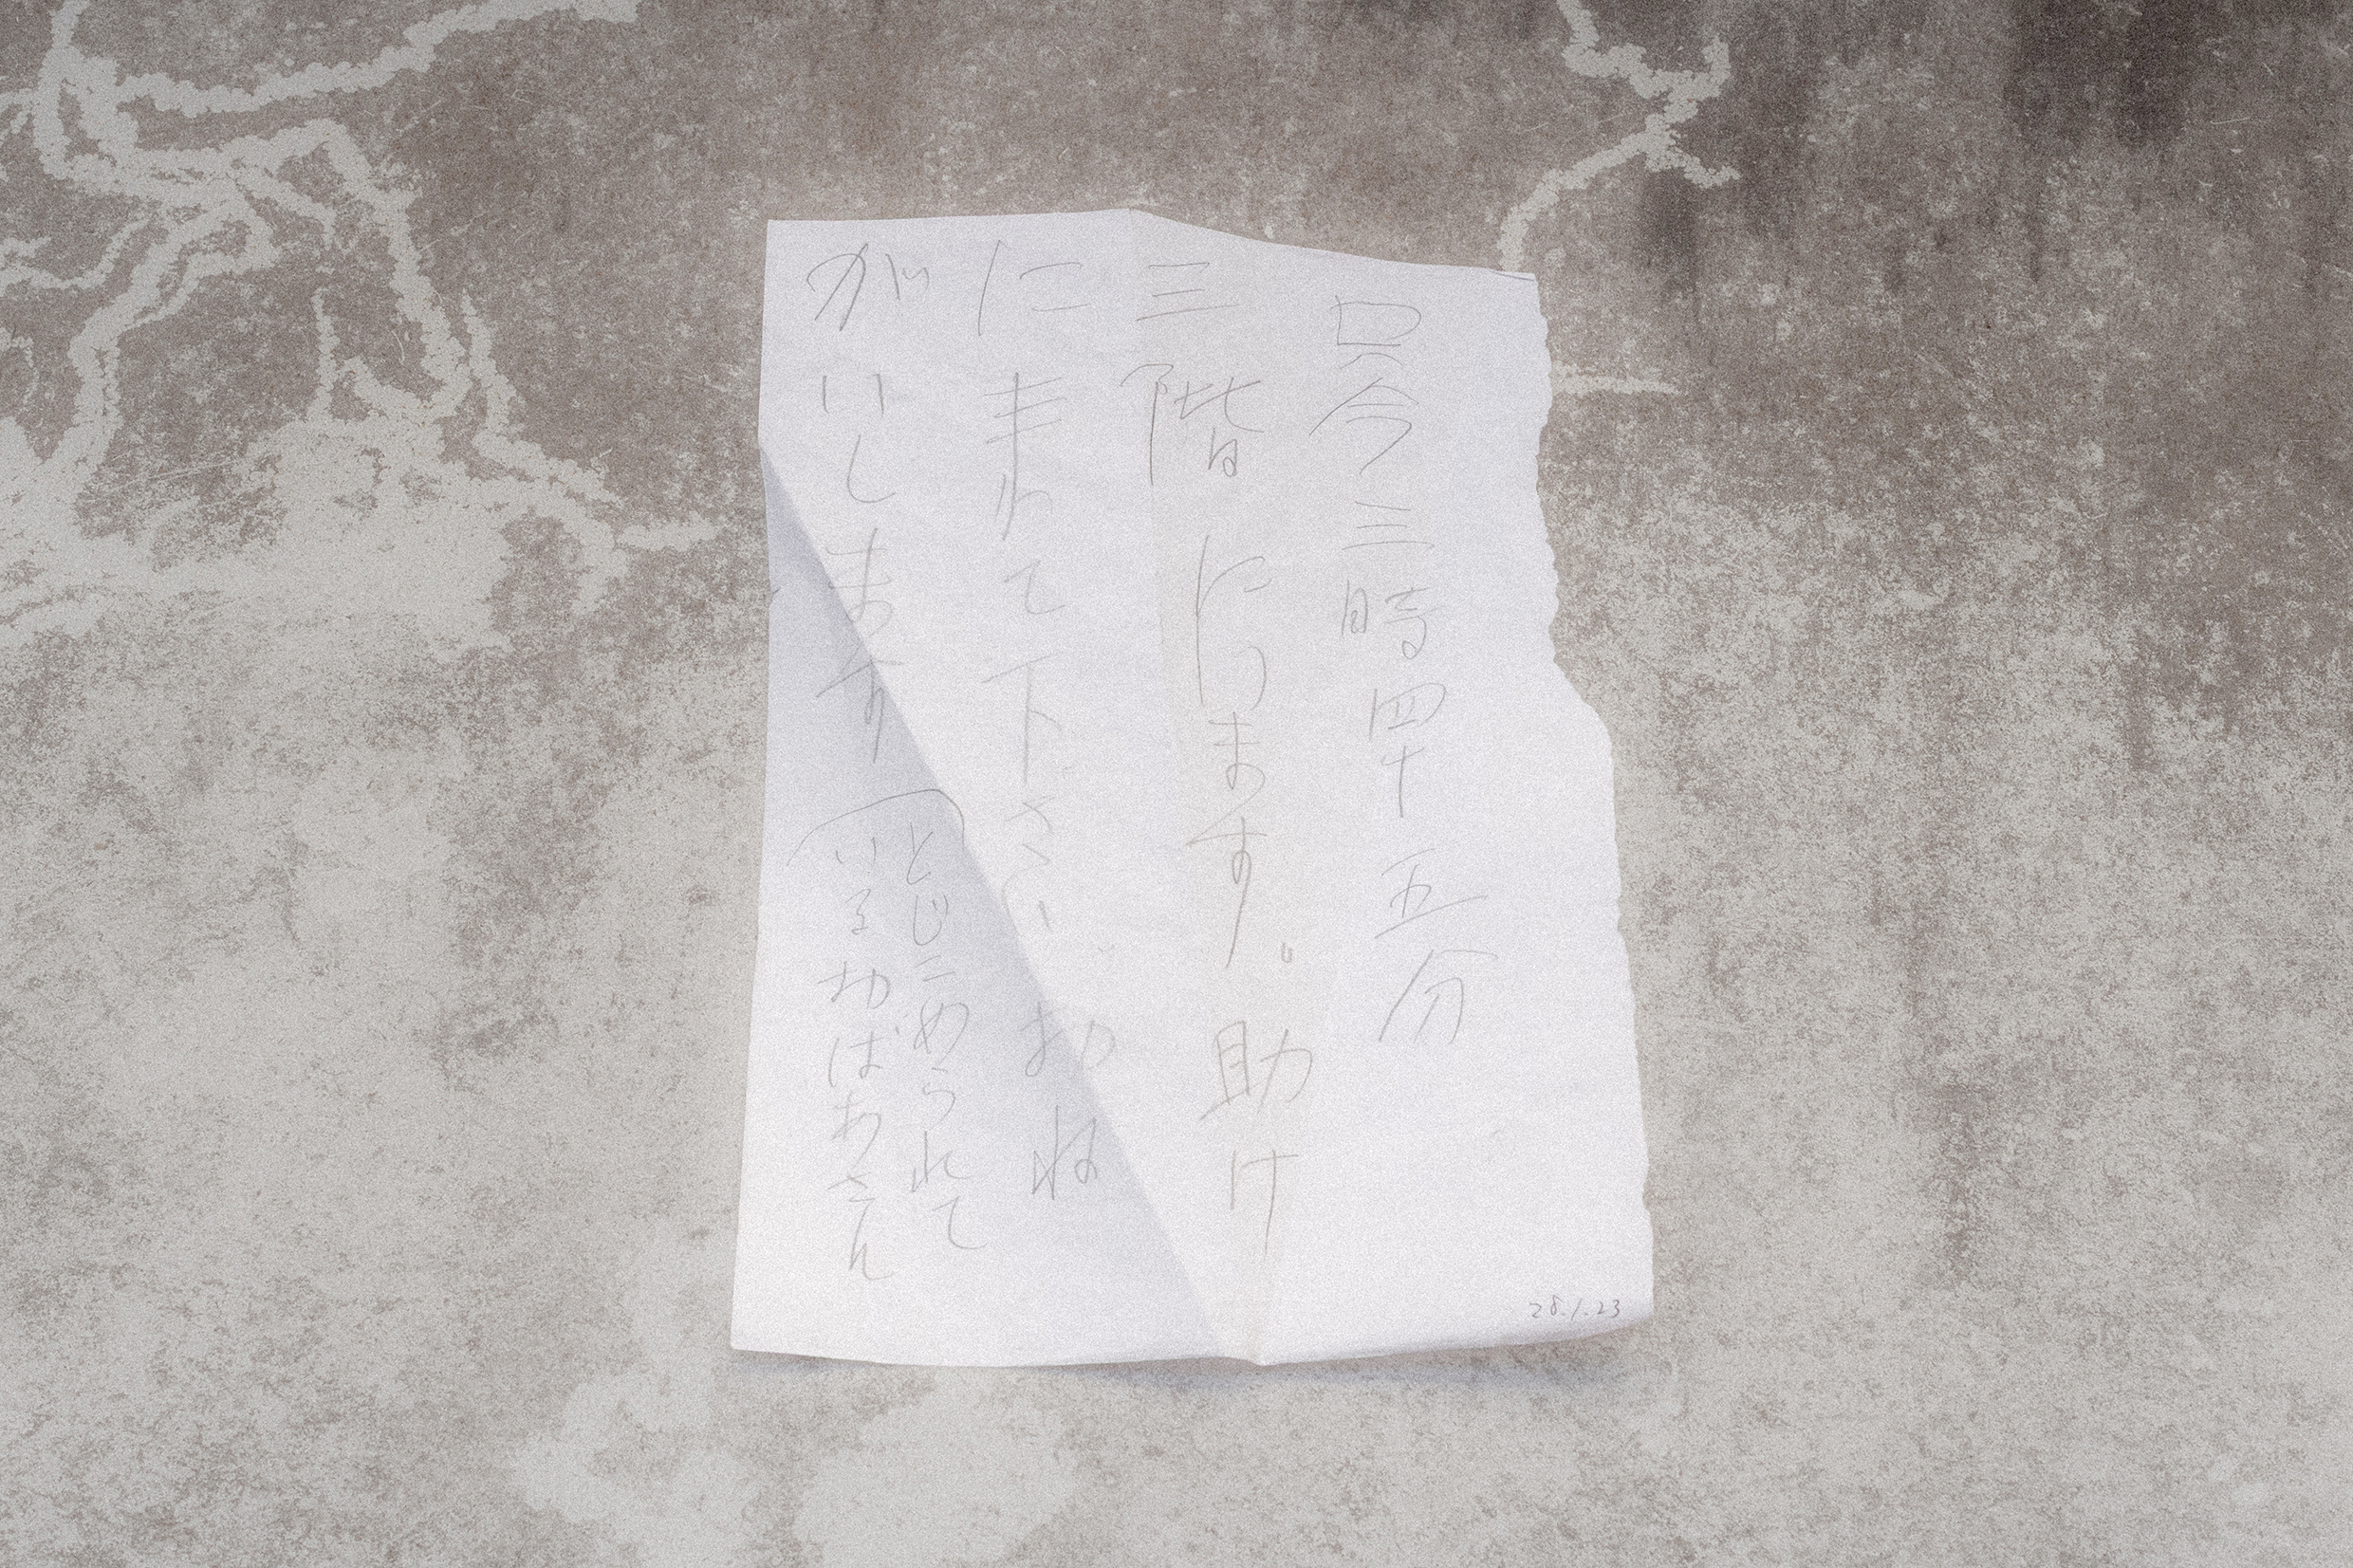 只今三時四十五分
三階に㋑ます。助け
に来て下さい。おね
がいします
とじこめられて
いるおばあさん
28.1.23